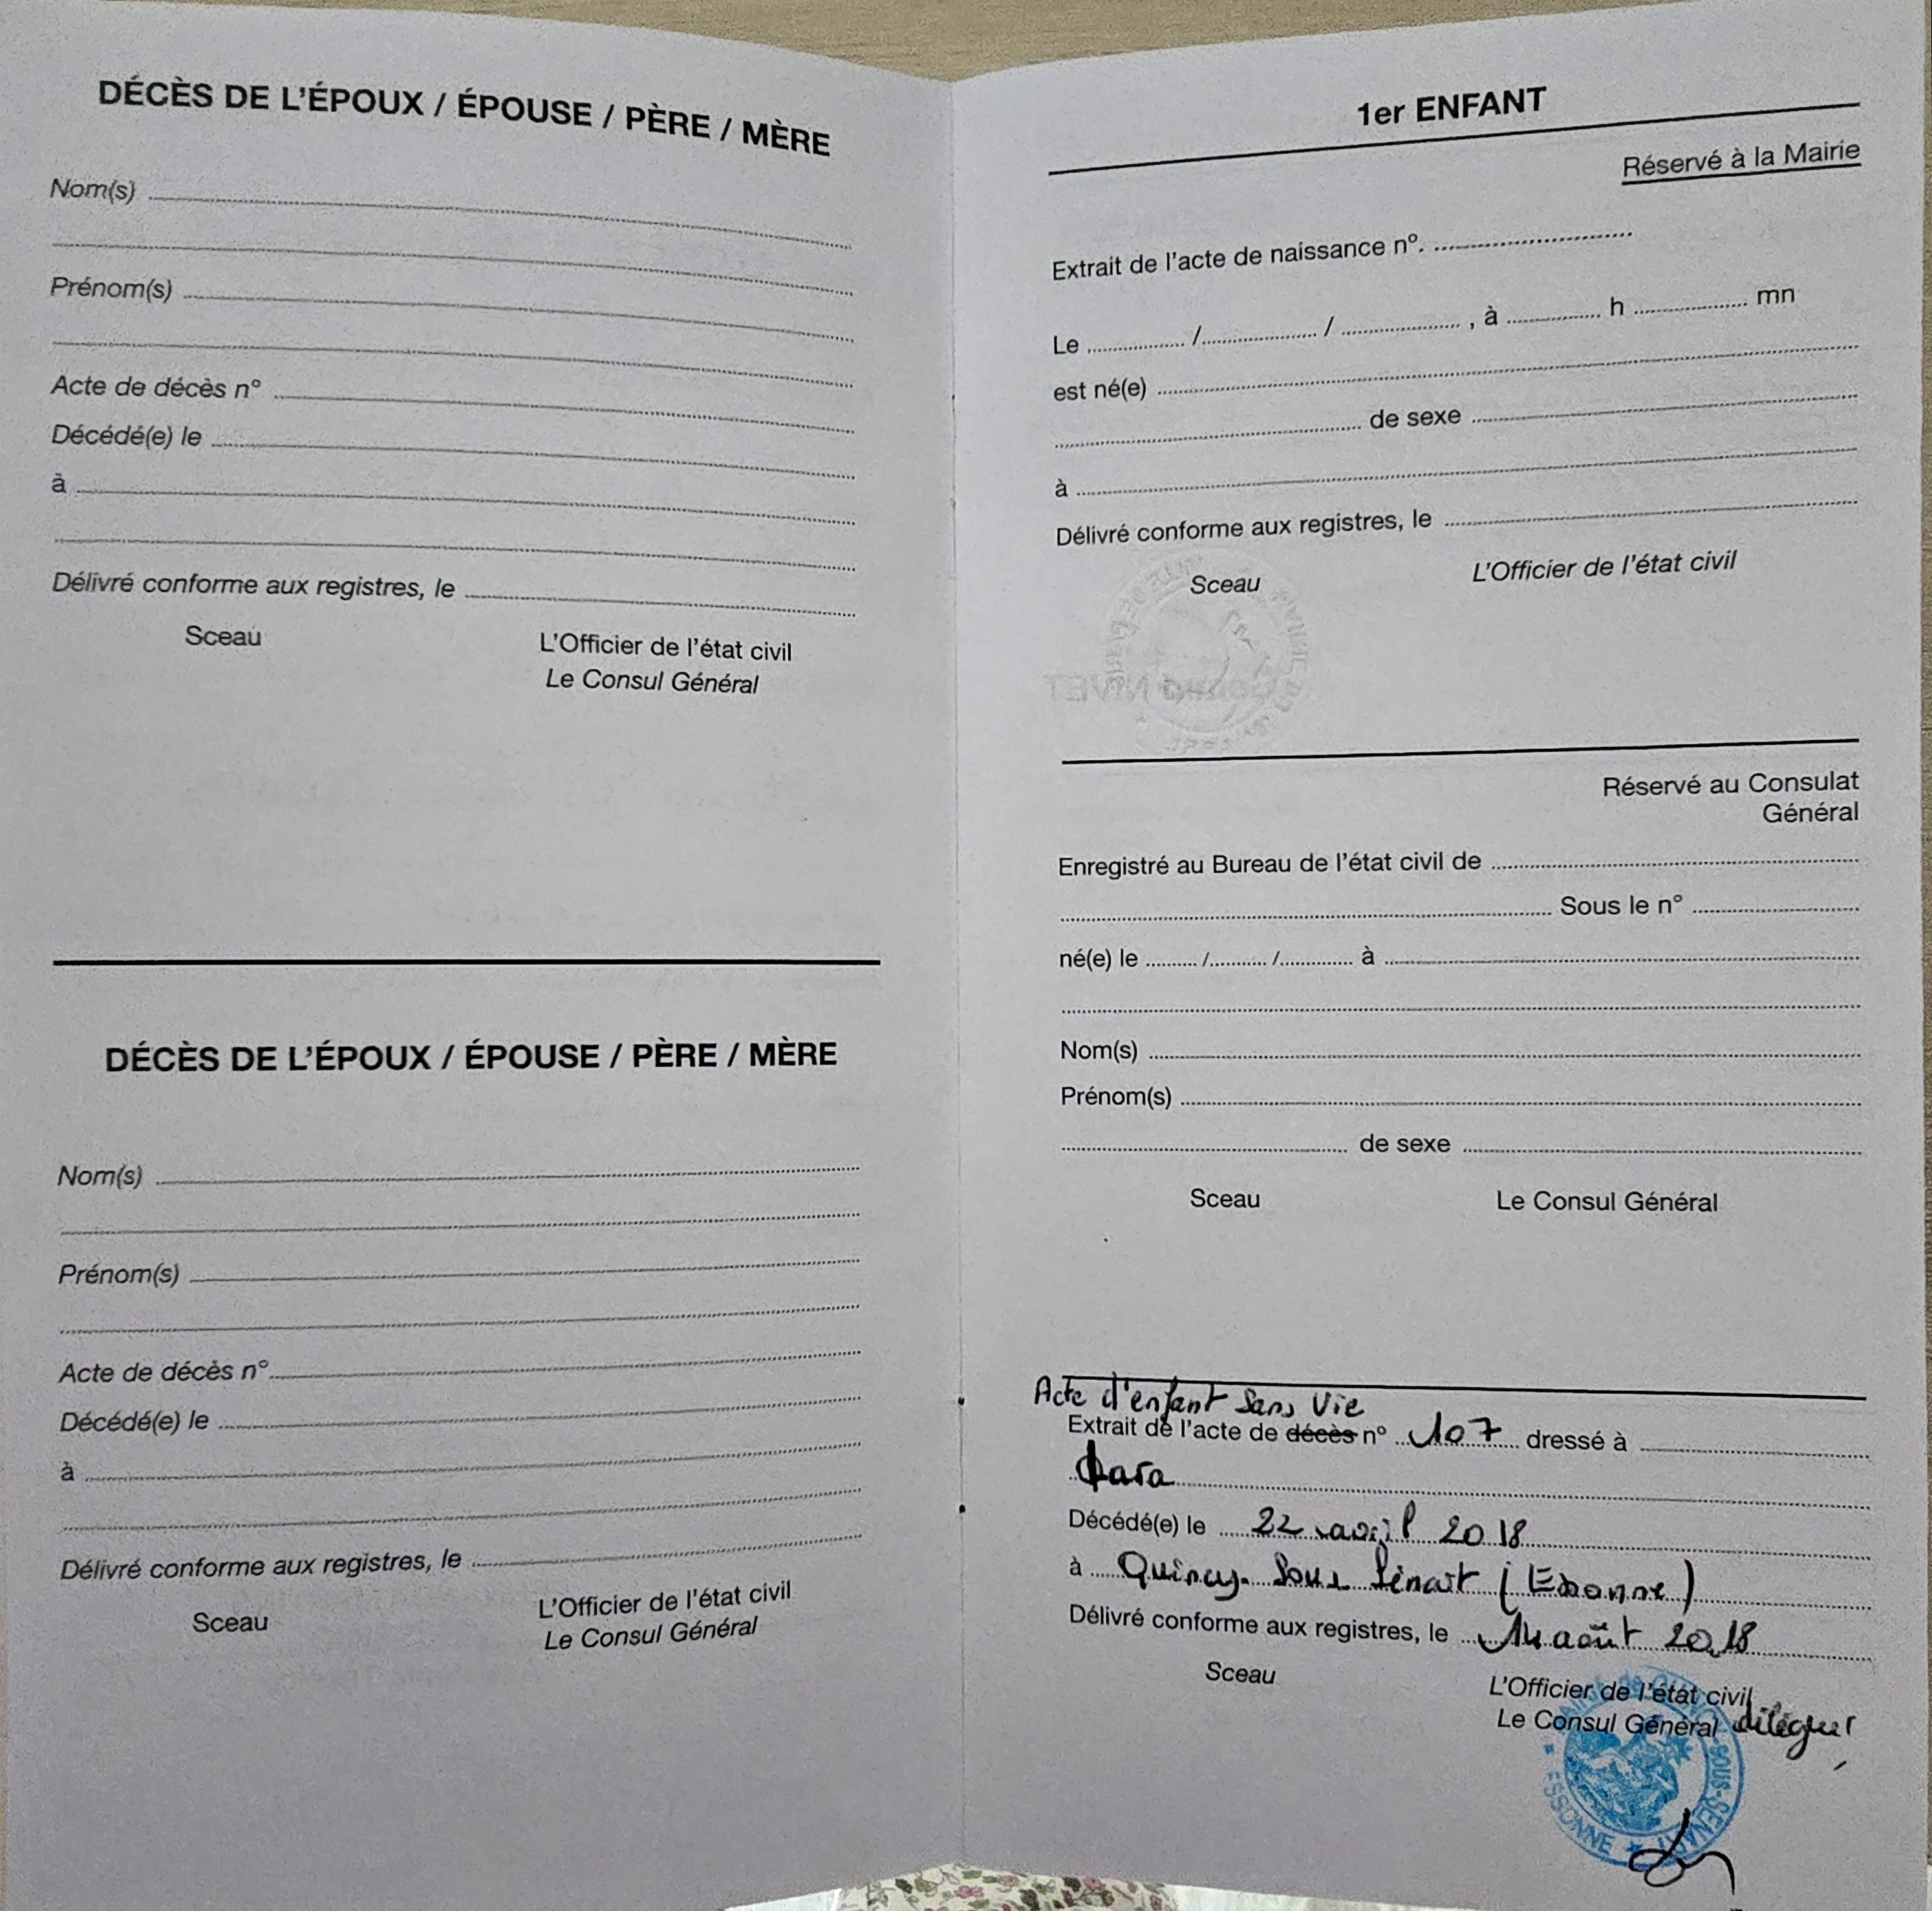 DÉCÈS DE L'ÉPOUX / ÉPOUSE / PÈRE / MÈRE
Nom(s)
Prénom(s)
Acte de décès n°
Décédé(e) le
à
Délivré conforme aux registres, le
Sceau
L'Officier de l'état civil
Le Consul Général
DÉCÈS DE L'ÉPOUX / ÉPOUSE / PÈRE / MÈRE
Nom(s)
Prénom(s)
Acte de décès n°
Décédé(e) le
à
Délivré conforme aux registres, le
Sceau
L'Officier de l'état civil
Le Consul Général
1er ENFANT
Réservé à la Mairie
Extrait de l'acte de naissance n°.
Le / / , à h mn
est né(e)
de sexe
à
Délivré conforme aux registres, le
Sceau L'Officier de l'état civil
Réservé au Consulat
Général
Enregistré au Bureau de l'état civil de
Sous le n°
né(e) le / / à
Nom(s)
Prénom(s)
de sexe
Sceau Le Consul Général
Acte d'enfant Sans Vie
Extrait de l'acte de décès n° 107 dressé à
Décédé(e) le 22 avril 2018
à Quincy-Sous Sénart (Essonne)
Délivré conforme aux registres, le 14 août 2018
Sceau
L'Officier de l'état civil
Le Consul Général
SOUS-SENART
ESSONNE